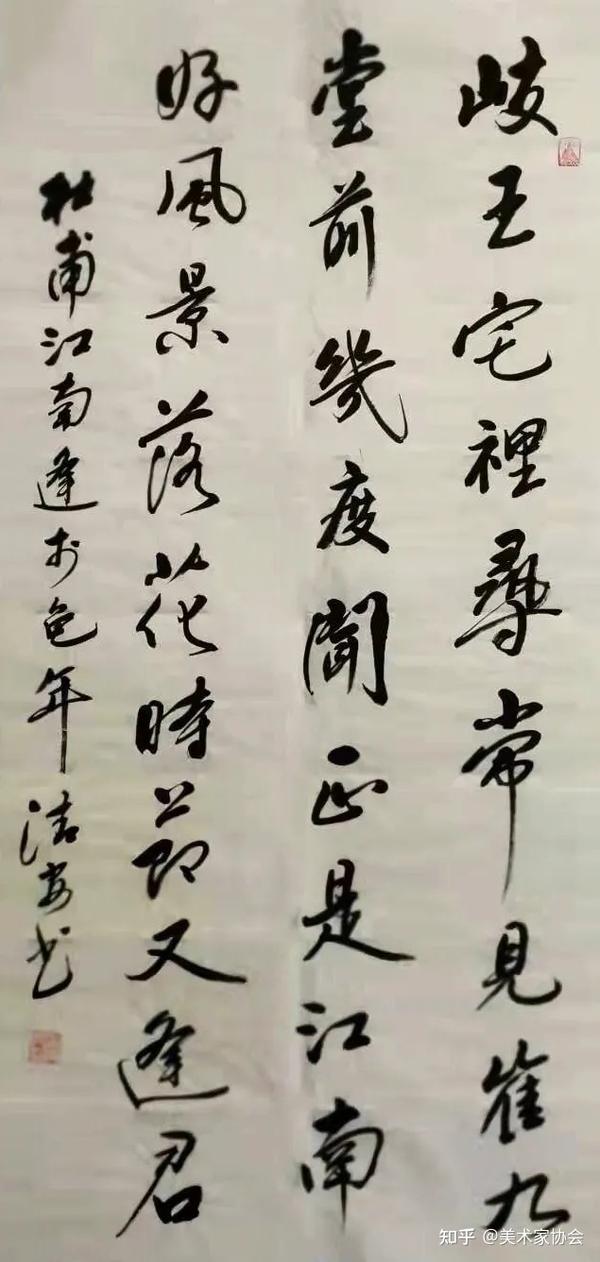 歧王宅裡尋常見崔九
堂前幾度聞正是江南
好風景落花時節又逢君
杜甫江南逢李龟年 洁安书
知乎 @美术家协会